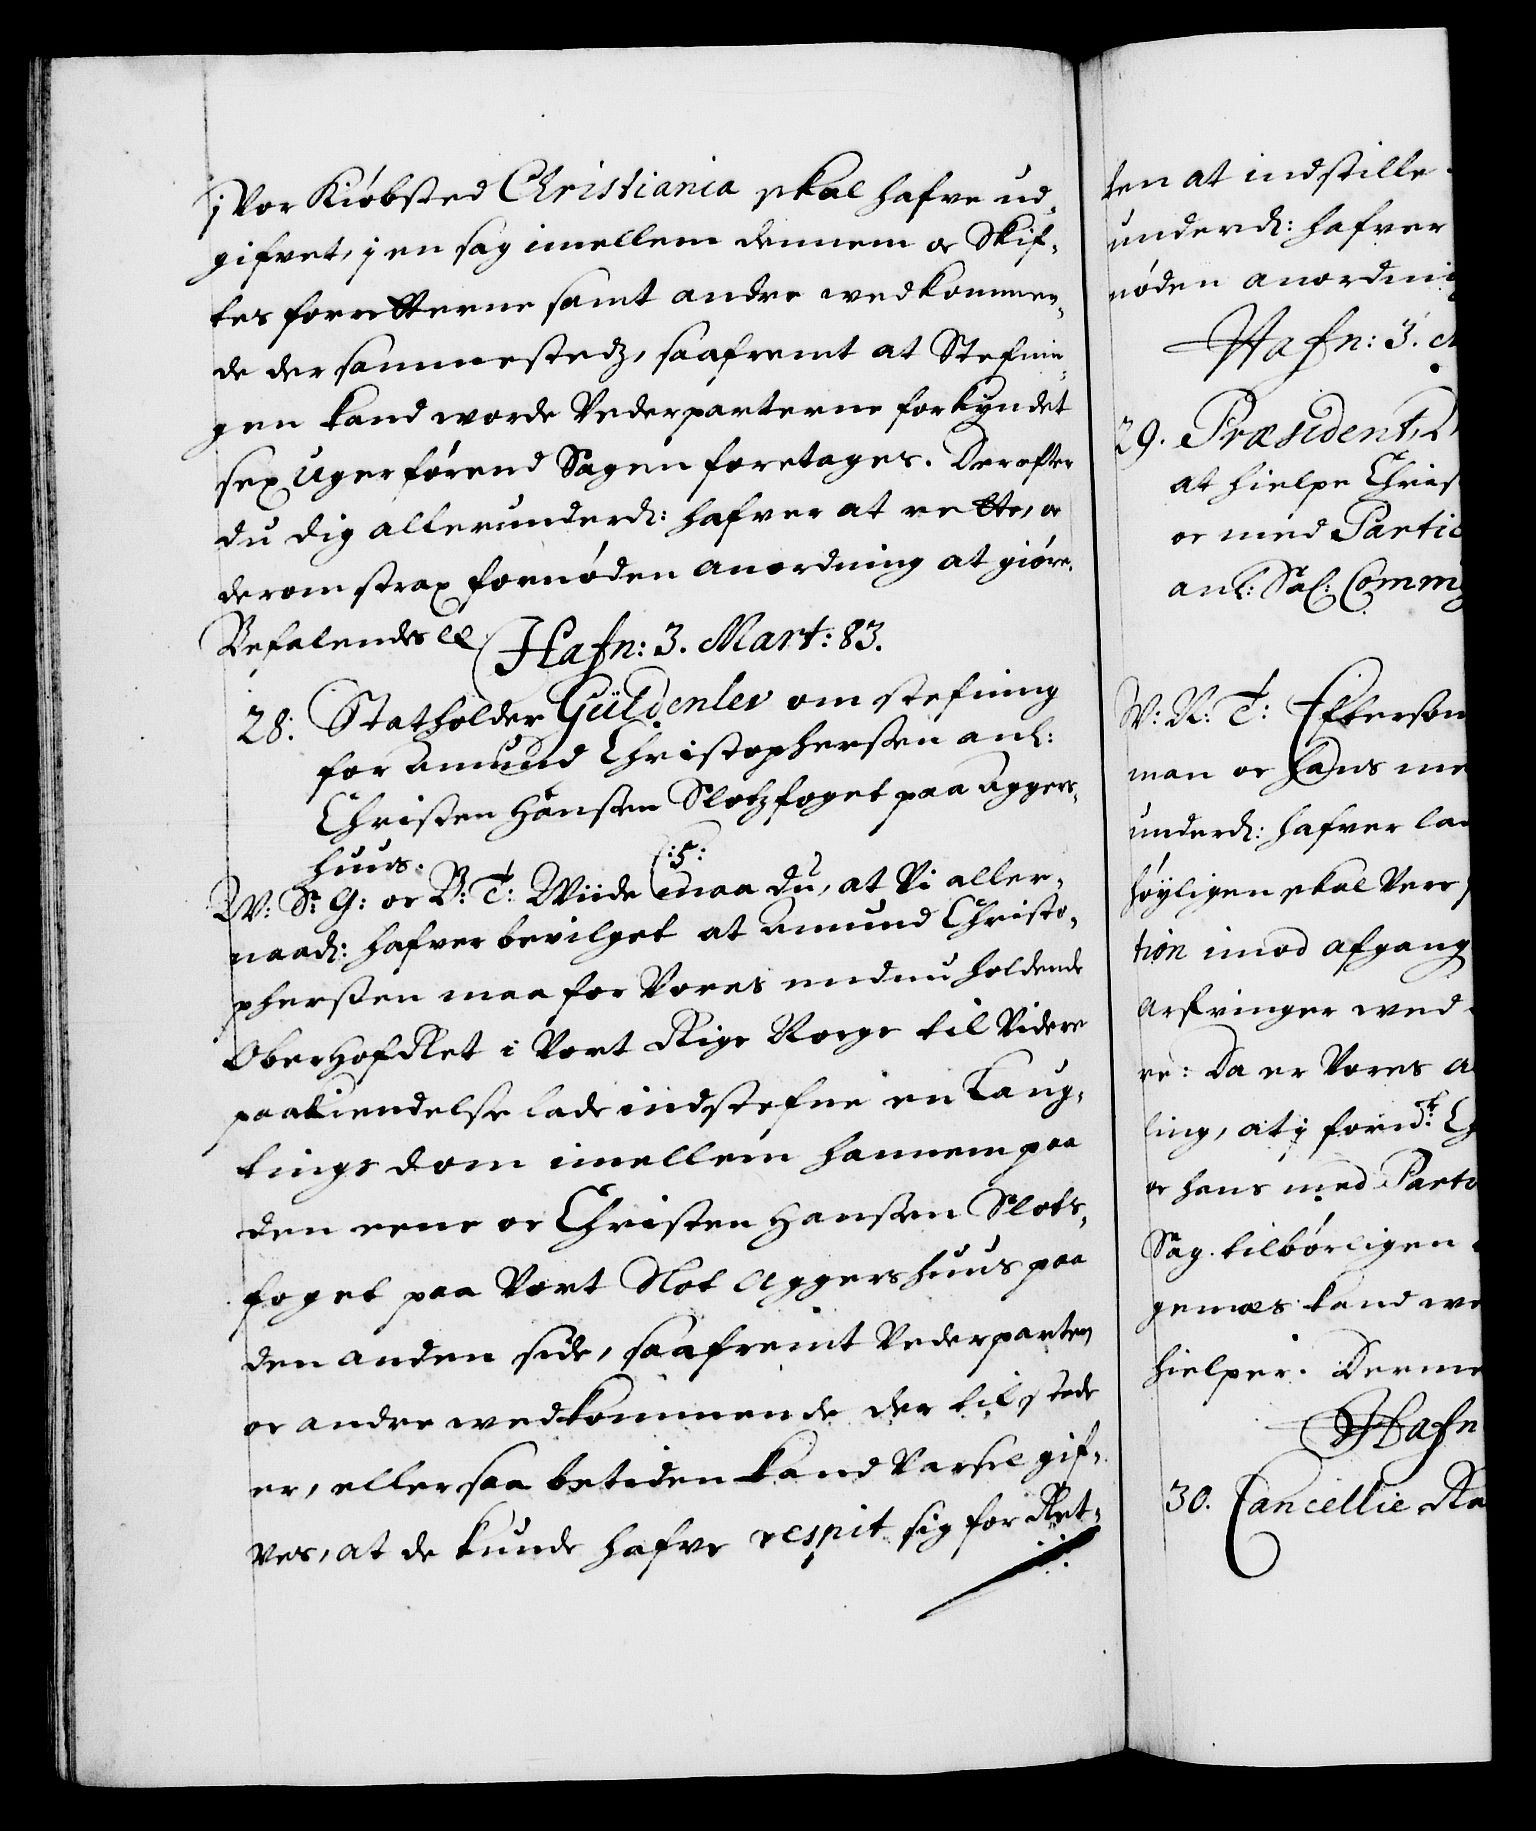 j Vor Kiøbsted Christiania skal hafve ud-
gifvet, j en sag imellem dennem oc Skif-
tes forretterne samt andre wedkommen-
de der sammestedz, saafremt at Stefnin-
gen kand worde Vederparterne forkyndet
sex Uger førend Sagen foretages. Derefter
du dig allerunderd: hafver at rette, oc
derom strax fornøden anordning at giøre.
Befalendes ec Hafn: 3. Mart: 83.
28. Statholder Güldenlev om stefning
for Amund Christophersen anl:
Christen Hansen Slotzfoget paa Aggers-
huus.
W: S: G: oc B: T: Wiide maa du, at Vi aller-
naad: hafver bevilget at Amund Christo-
phersen maa for Vores nudnu holdende
OberhofRet i Vort Rige Norge til Videre
paakiendelse lade indstefne en Laug-
tings dom imellem hannem paa
den eene oc Christen Hansen Slots-
foget paa Vort Slot Aggershuus paa
den anden side, saafremt Vederparten
oc andre wedkommende der tilstede
er, eller saa betiden kand Varsel gif-
ves, at de kunde hafve respit sig for Ret-
ten at indstille.
underd: hafver
nøden anordni
Hafn: 3.
29. Præsident,
at hielpe Chris
oc med Partic
anl: Sal: Comm
W: N: T: Eftersom
man oc hans me
underd: hafver la
høyligen skal Vere
tion imod afgang
Arfvinger wed
re: Da er Vores
ling, at j fornd:
oc hans med Parti
Sag tilbørligen
gemæs kand we
hielper. Derme
Hafn
30. Cancellie Ra